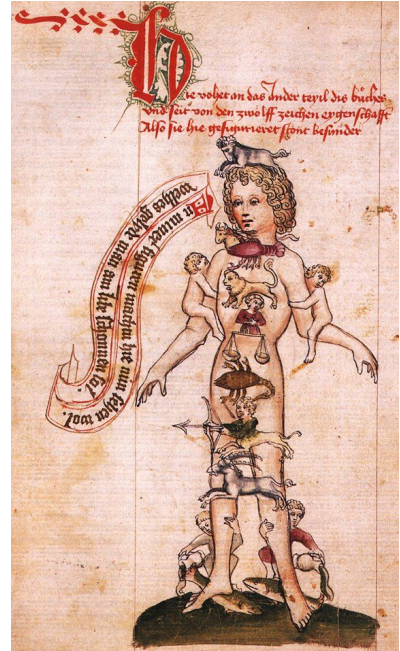 Hie vohet an das Ander teyil dis bůches
vnd seit von den zwolff zeichen eygenschafft
Also sie hie gefigurieret stont besunder
In miner figuren machtu hye nun sehen wol.
welhes man am lib schouwen sol.